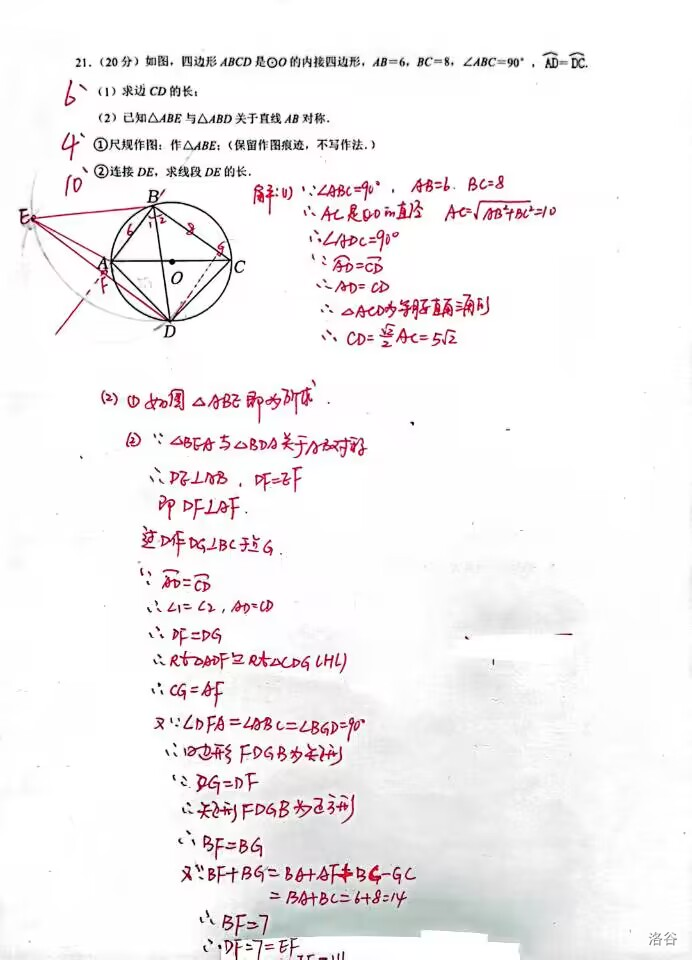 21.(20分)如图,四边形ABCD是⊙O的内接四边形,AB=6,BC=8,∠ABC=90°,A͡D=D͡C.
6'
(1)求边CD的长;
(2)已知△ABE与△ABD关于直线AB对称.
4'
①尺规作图:作△ABE;(保留作图痕迹,不写作法.)
10'
②连接DE,求线段DE的长.
B
E
6
1
2
8
G
A
F
O
C
D
解:(1) ∵∠ABC=90°, AB=6. BC=8
∴AC是⊙O的直径 AC=√AB²+BC²=10
∴∠ADC=90°
∵A͡D=C͡D
∴AD=CD
∴△ACD为等腰直角三角形
∴CD=√2/2AC=5√2
(2) ①如图△ABE即为所求.
② ∵△BEA与△BDA关于AB对称
∴DE⊥AB, DF=EF
即DF⊥AF.
过D作DG⊥BC于点G.
∵A͡D=C͡D
∴∠1=∠2, AD=CD
∴DF=DG
∴Rt△ADF≌Rt△CDG(HL)
∴CG=AF
又∵∠DFA=∠ABC=∠BGD=90°
∴四边形FDGB为矩形
∵DG=DF
∴矩形FDGB为正方形
∴BF=BG
又∵BF+BG=BA+AF+BC-GC
=BA+BC=6+8=14
∴BF=7
∴DF=7=EF
洛谷